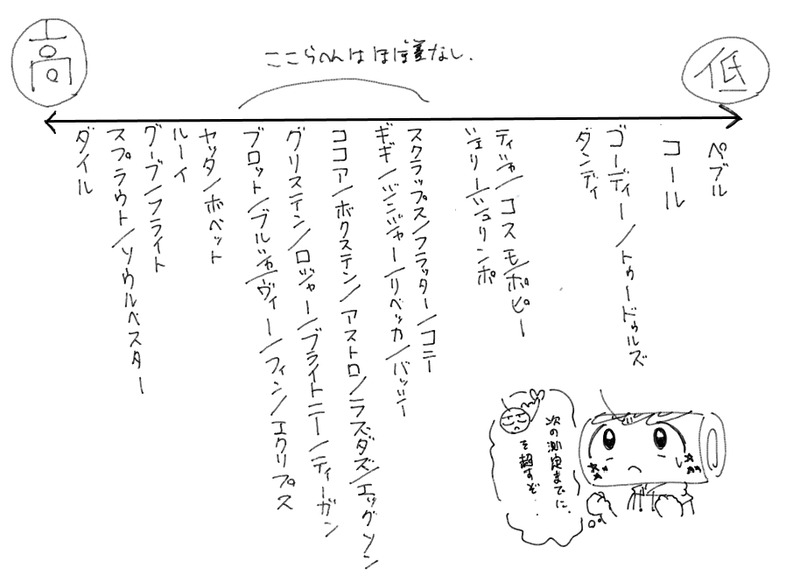 高
ここらへんはほぼ差なし.
低
ダイル
スプラウト/ソウルベスター
グーブ/フライト
ルーイ
ヤッダ/ボベット
ブロット/ブルジャ/ヴィー/フィン/エクリプス
グリステン/ロジャー/ブライトニー/ティーガン
ココア/ボクステン/アストロ/ラズダズ/エッグソン
ギギ/ジンジャー/リベッカ/バッシー
スクラップス/フラッター/コニー
シェリー/シュリンポ
ティシャ/コスモ/ポピー
ダンディ
ゴーディー/トゥードゥルズ
コール
ペブル
次の測定までに、
を超すぞ.